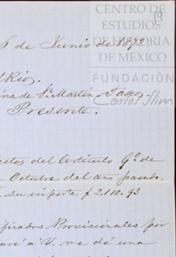 CENTRO DE
ESTUDIOS
DE HISTORIA
DE MÉXICO
FUNDACIÓN
Carlos Slim
6 de Junio de 1872
Rio.
na de Sn. Martin
Presente.
del Artículo 9º de
Octubre del año pasado
su importe $2110.93
Provisionales por
á V. me dé una